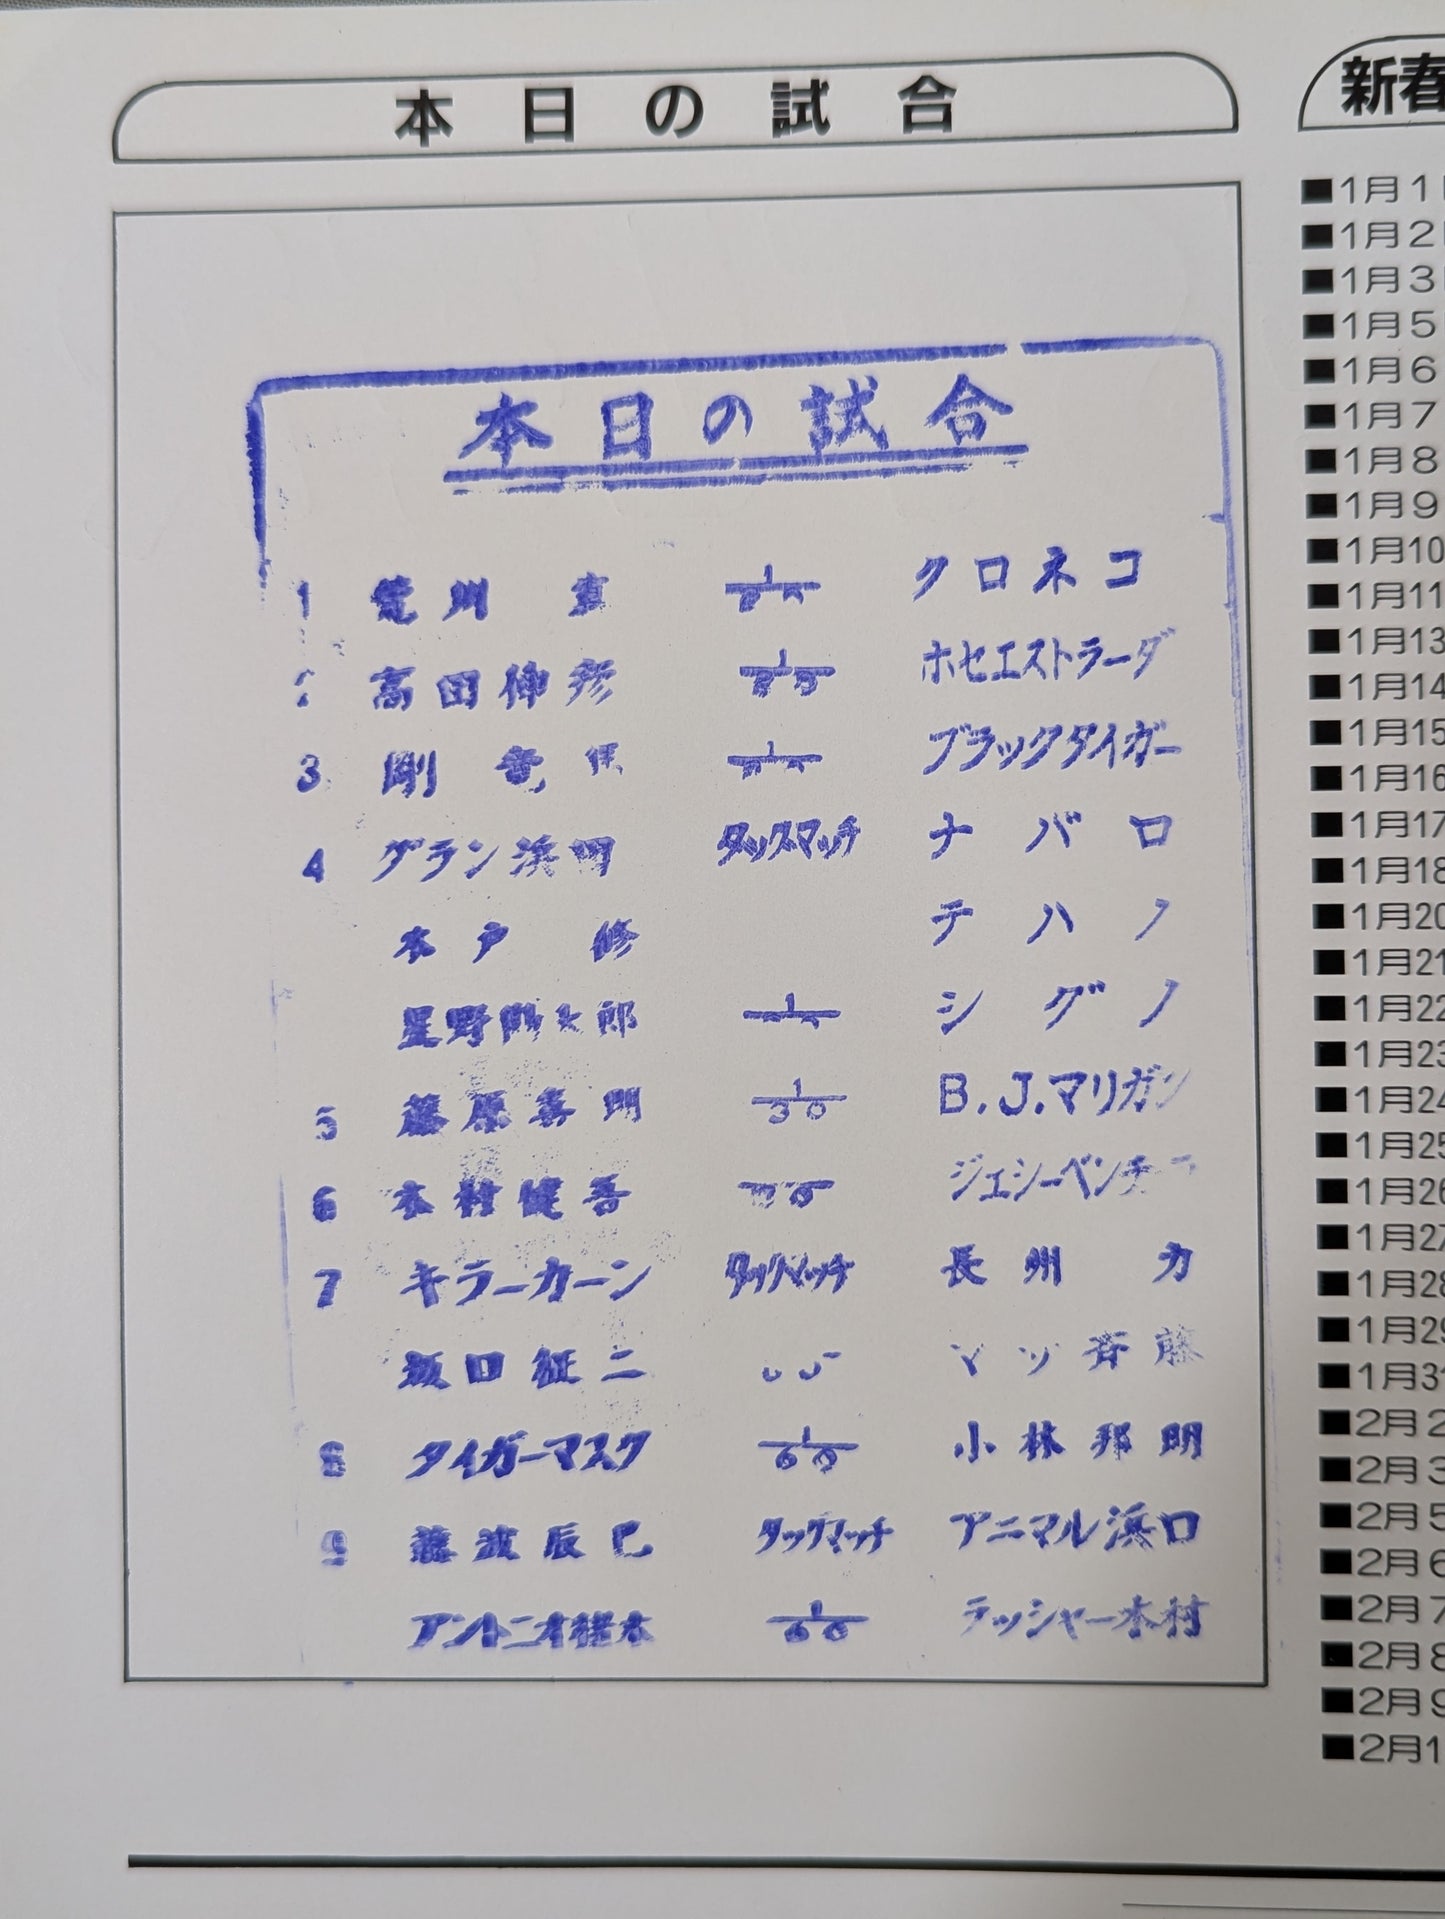 本日の試合
本日の試合
1 荒川 真 1 クロネコ
高田伸彦 1 ホセエストラーダ
3 剛 竜馬 1 ブラックタイガー
4 グラン浜田 タッグマッチ ナバロ
木戸 修 テハノ
星野勘太郎 1 シグノ
5 藤原喜明 1/30 B.J.マリガン
6 木村健吾 ジェシーベンチ
7 キラーカーン タッグマッチ 長州 力
坂口征二 マサ斉藤
8 タイガーマスク 1/60 小林邦明
9 藤波辰巳 タッグマッチ アニマル浜口
アントニオ猪木 1/60 ラッシャー木村
新春
■1月1
■1月2
■1月3
■1月5
■1月6
■1月7
■1月8
■1月9
■1月10
■1月11
■1月13
■1月14
■1月15
■1月16
■1月17
■1月18
■1月20
■1月21
■1月22
■1月23
■1月24
■1月25
■1月26
■1月27
■1月28
■1月29
■1月31
■2月2
■2月3
■2月5
■2月6
■2月7
■2月8
■2月9
■2月1